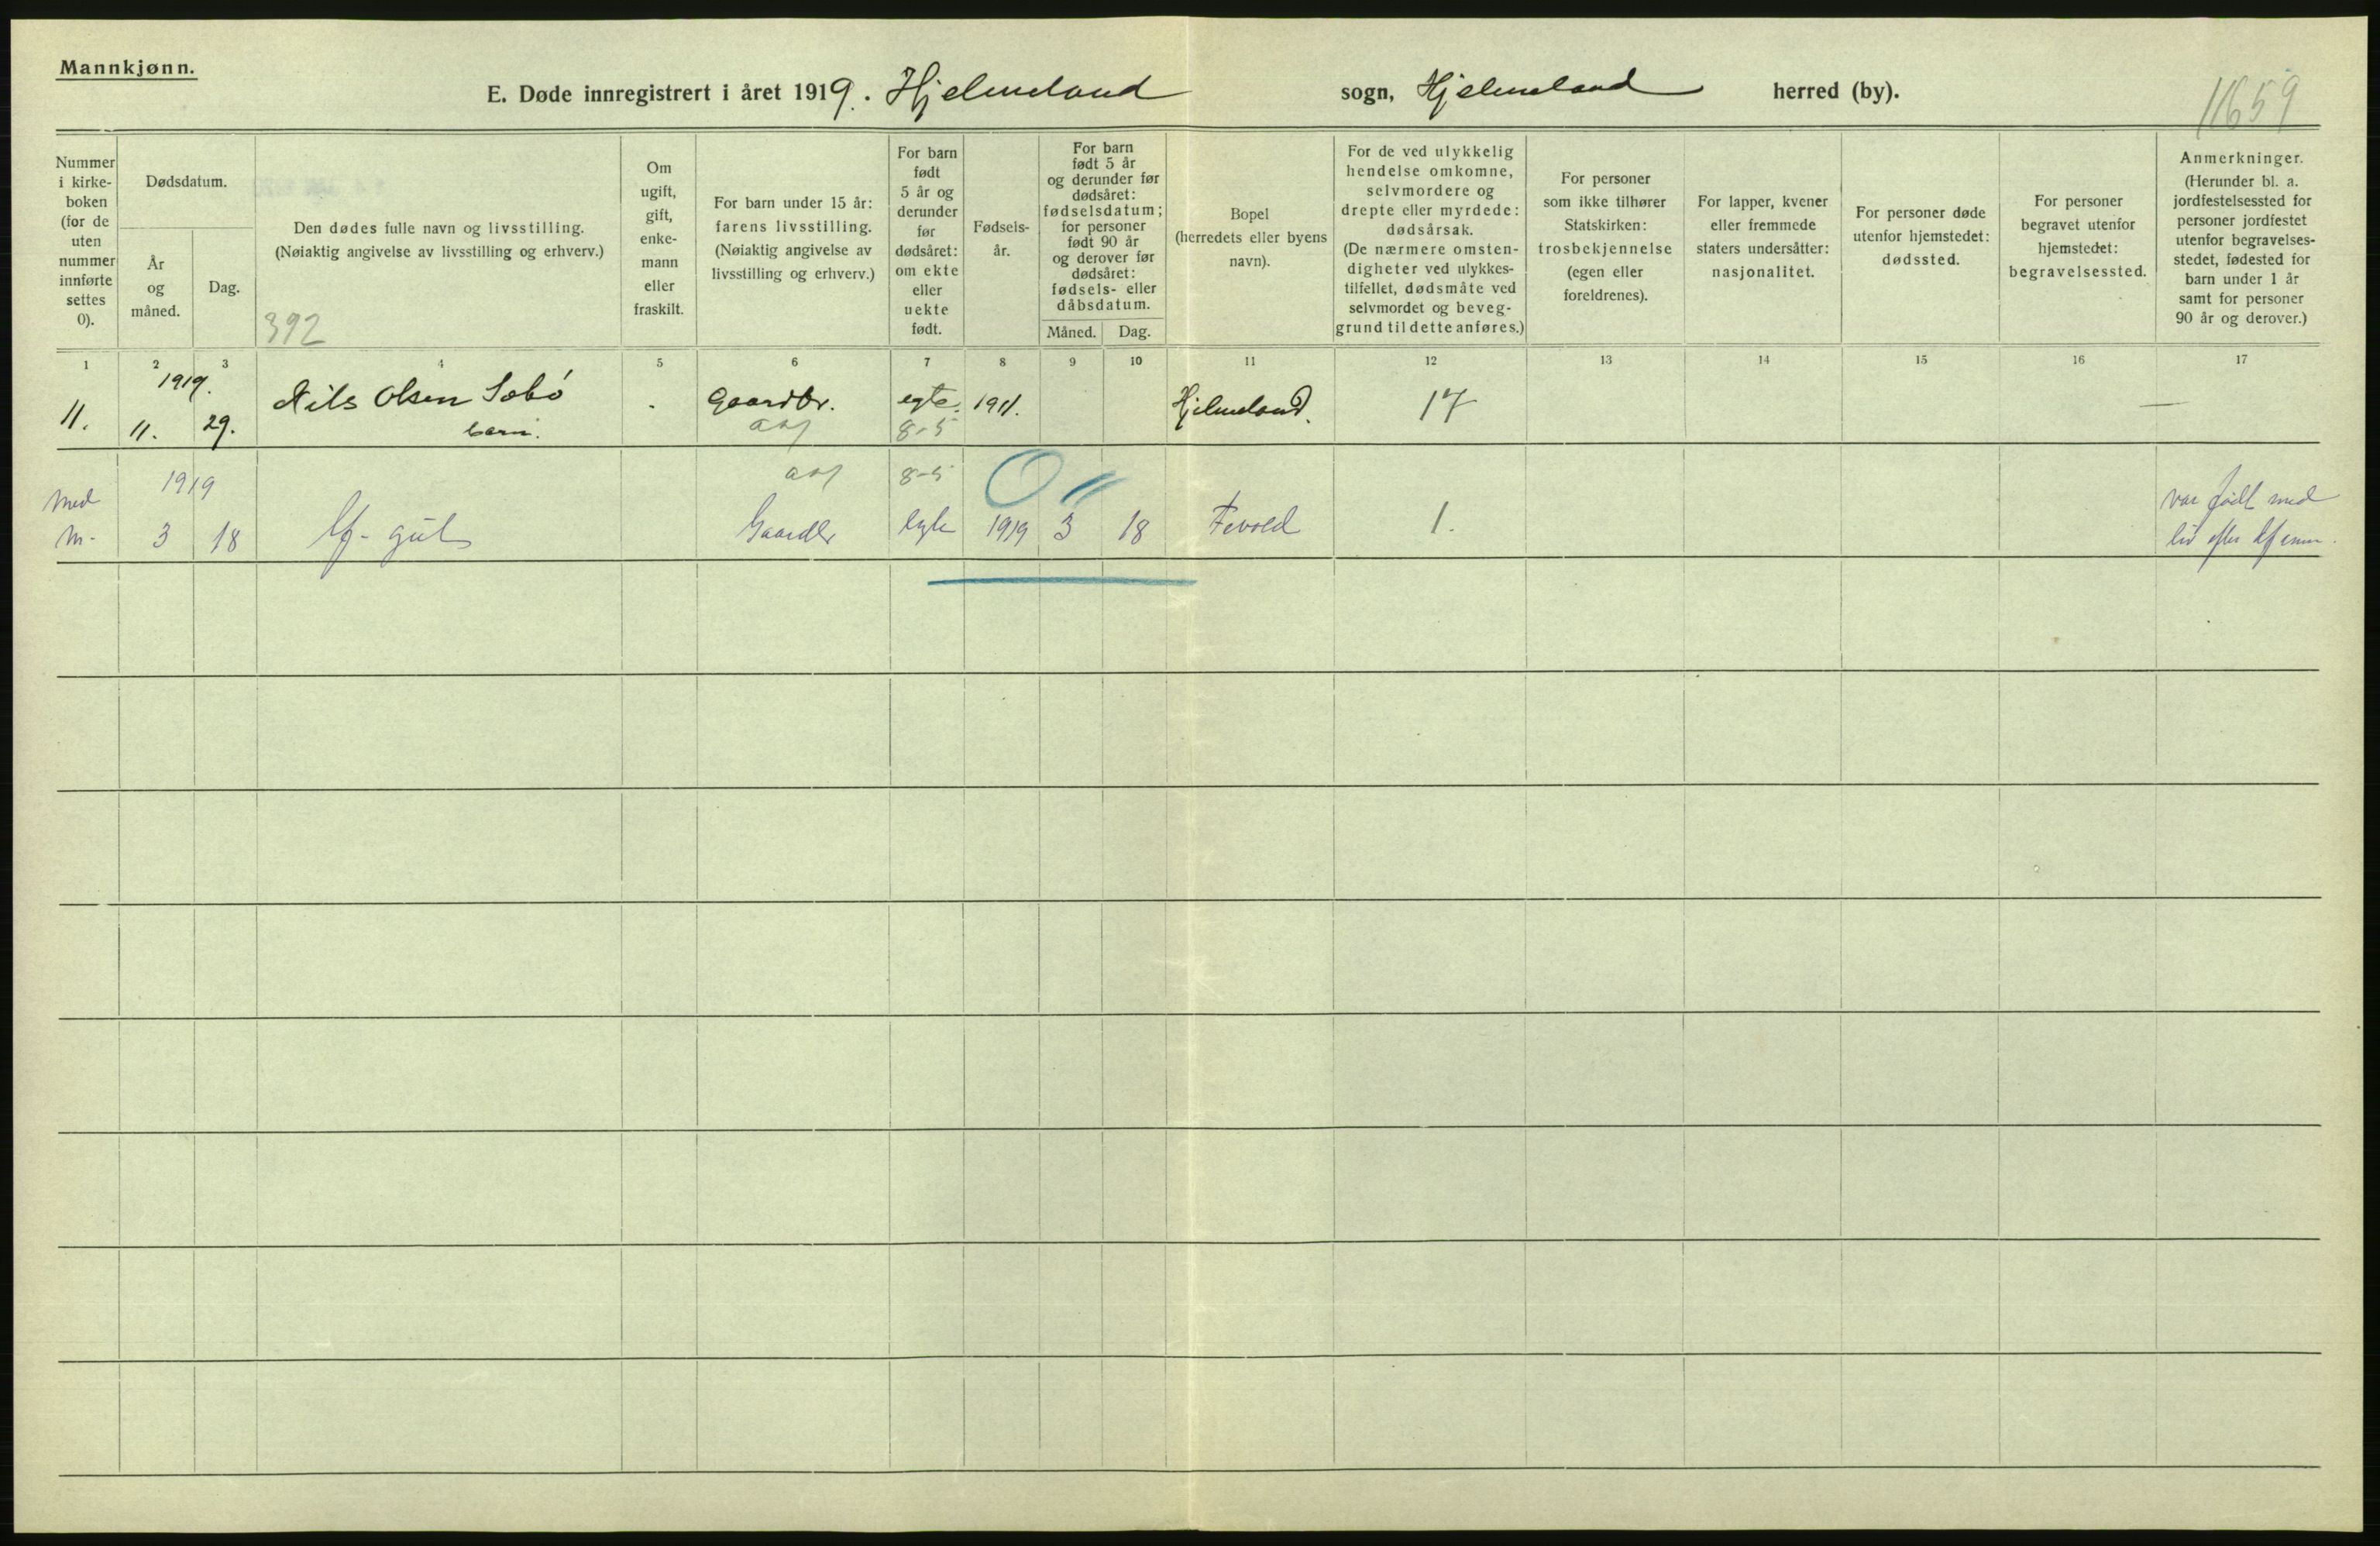 Mannkjønn.
E. Døde innregistrert i året 1919. Hjelmeland sogn, Hjelmeland herred (by).
11659
Nummer
i kirke-
boken
(for de
uten
nummer
innførte
settes
0).
Dødsdatum.
År
og
måned.
Dag.
Den dødes fulle navn og livsstilling.
(Nøiaktig angivelse av livsstilling og erhverv.)
392
Om
ugift,
gift,
enke-
mann
eller
fraskilt.
For barn under 15 år:
farens livsstilling.
(Nøiaktig angivelse av
livsstilling og erhverv.)
For barn
født
5 år og
derunder
før
dødsåret:
om ekte
eller
uekte
født.
Fødsels-
år.
For barn
født 5 år
og derunder før
dødsåret:
fødselsdatum;
for personer
født 90 år
og derover før
dødsåret:
fødsels- eller
dåbsdatum.
Måned.
Dag.
Bopel
(herredets eller byens
navn).
For de ved ulykkelig
hendelse omkomne,
selvmordere og
drepte eller myrdede:
dødsårsak.
(De nærmere omsten-
digheter ved ulykkes-
tilfellet, dødsmåte ved
selvmordet og beveg-
grund til dette anføres.)
For personer
som ikke tilhører
Statskirken:
trosbekjennelse
(egen eller
foreldrenes).
For lapper, kvener
eller fremmede
staters undersåtter:
nasjonalitet.
For personer døde
utenfor hjemstedet:
dødssted.
For personer
begravet utenfor
hjemstedet:
begravelsessted.
Anmerkninger.
(Herunder bl. a.
jordfestelsessted for
personer jordfestet
utenfor begravelses-
stedet, fødested for
barn under 1 år
samt for personer
90 år og derover.)
1 2 3 4 5 6 7 8 9 10 11 12 13 14 15 16 17
1919.
11. 11. 29. Nils Olsen Sabó . Gaardbr. egte. 1911. Hjelmeland. 17 —
barn. 8-5
1919 8-5
med var født med
m. 3 18 gut Gaardbr egte 1919 3 18 1.
liv efter